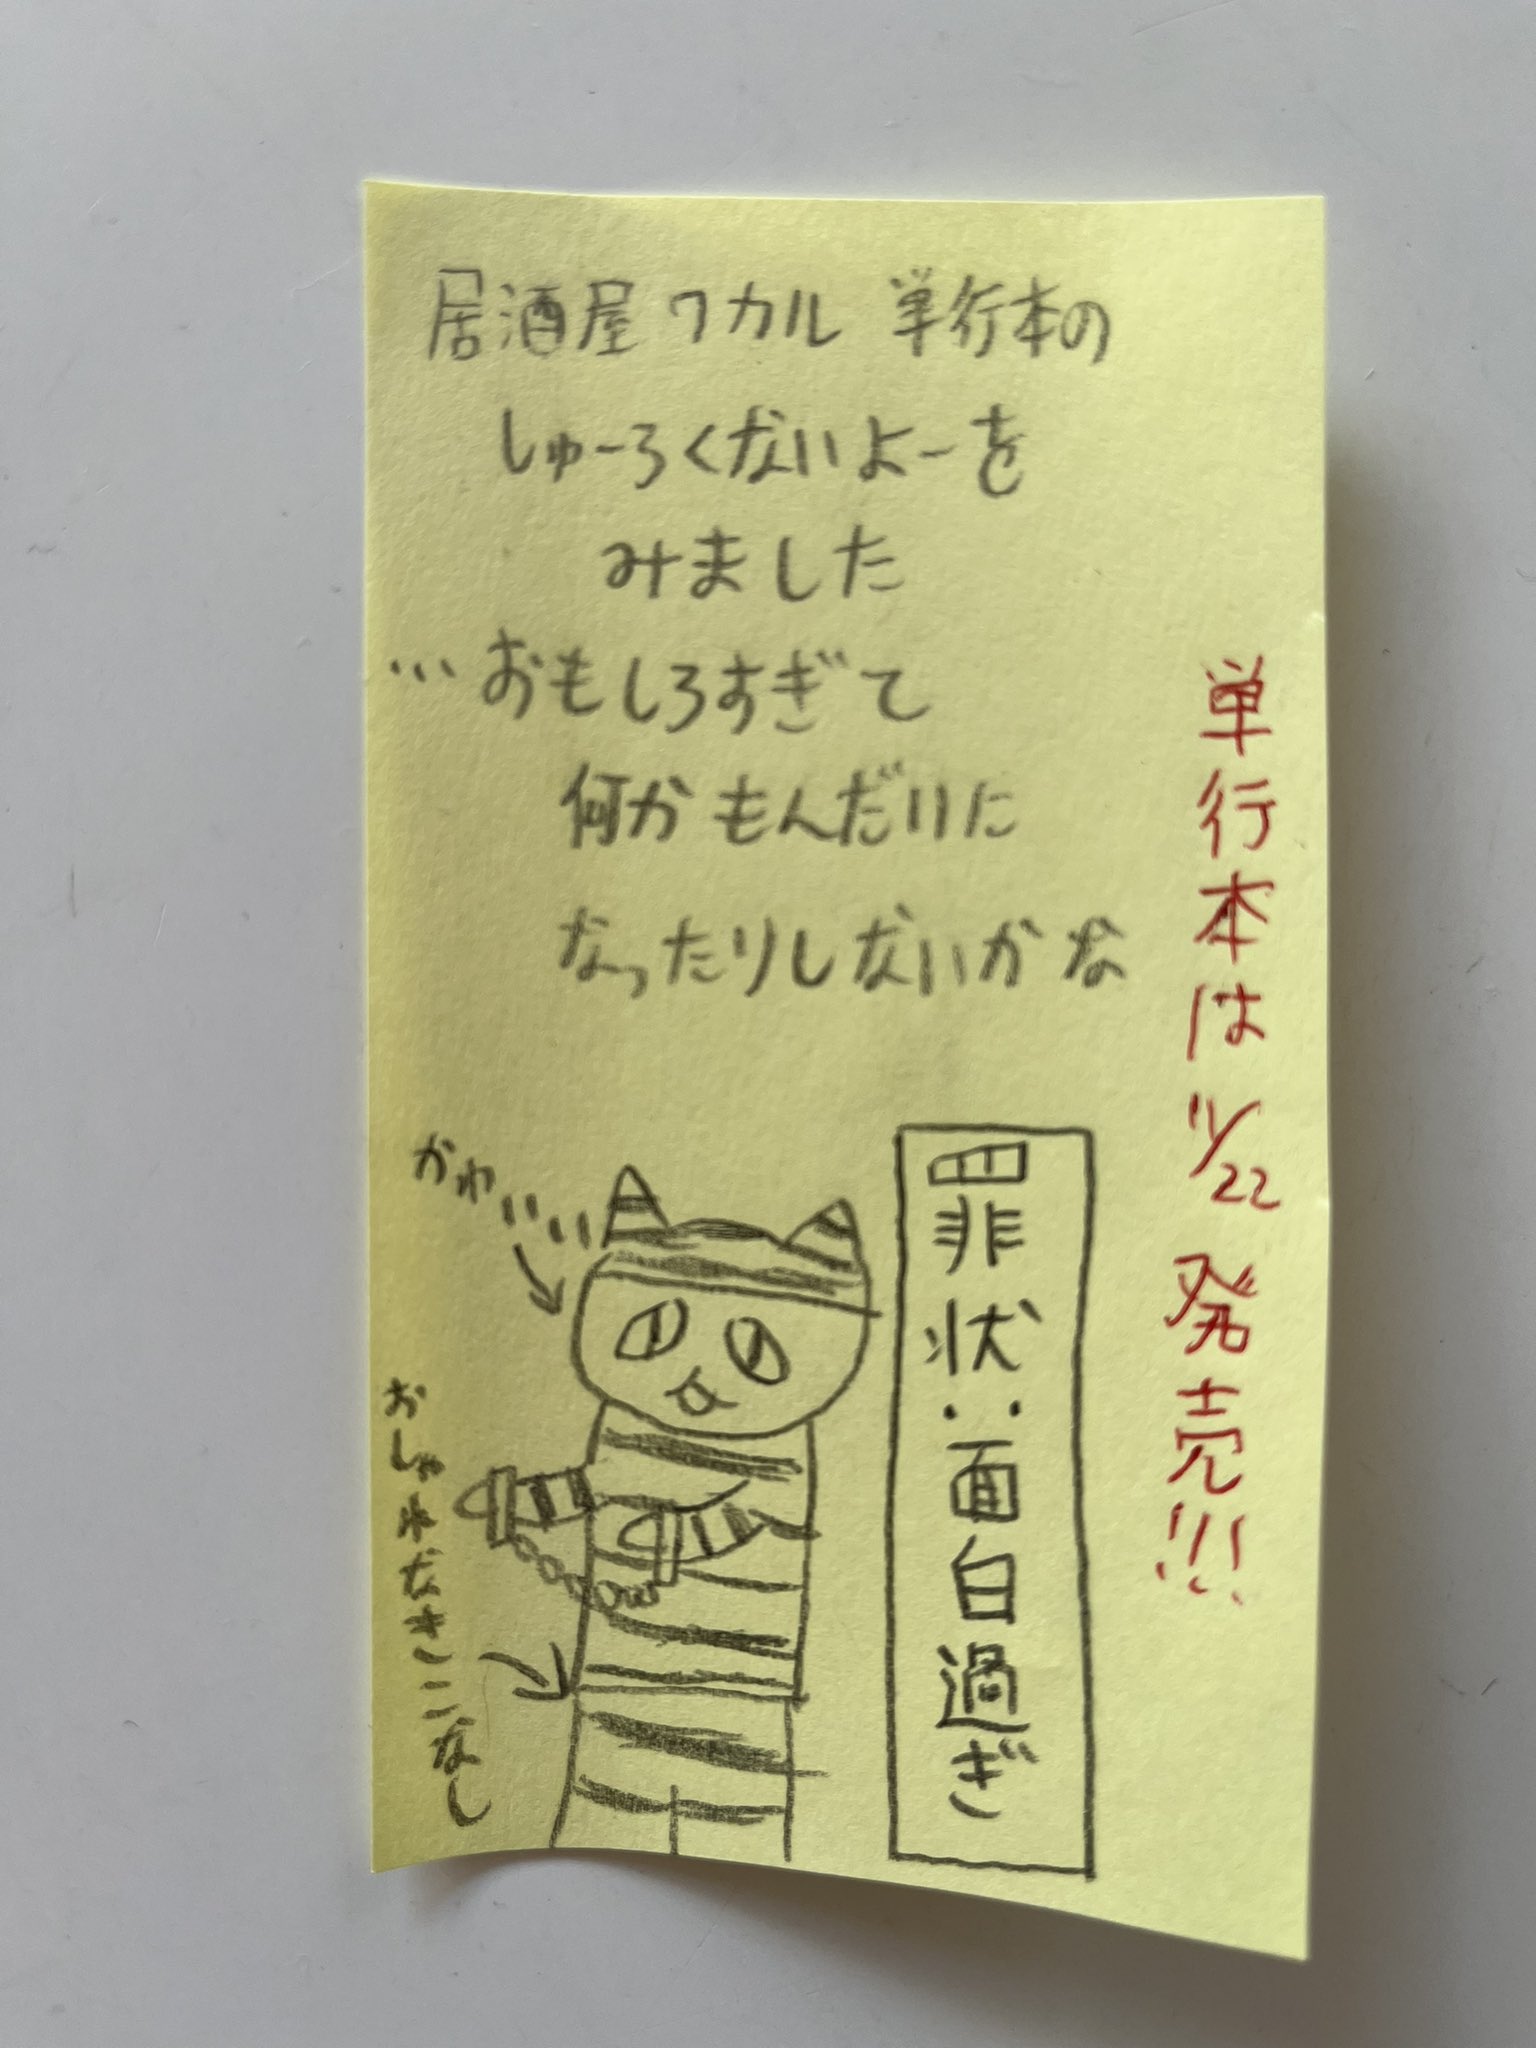 居酒屋ワカル 単行本の
しゅーろくないよーを
みました
…おもしろすぎて
何かもんだいに
なったりしないかな
単行本は11/22発売!!!
かわいい
おしゃれなきこなし
罪状:面白過ぎ